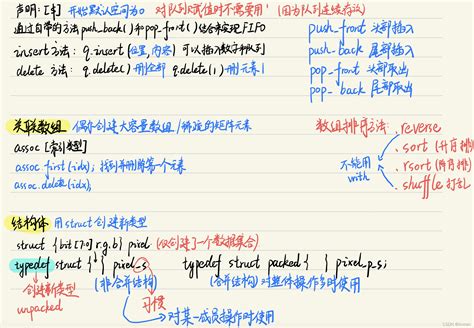 声明:[$] 开始默认空间为0 对队列赋值时不需要用' (因为队列连续存放)
通过自带的方法push_back()和pop_front()结合来实现FIFO
insert方法: q.insert(位置,内容) 可以插入数字和队列
delete 方法: q.delete() 删全部 q.delete(1) 删元素1
push_front 头部插入
push_back 尾部插入
pop_front 头部取出
pop_back 尾部取出
关联数组 偶尔创建大容量数组/稀疏的矩阵元素
assoc [索引类型]
assoc.first(idx); 找到并删除第一个元素
assoc.delete(idx);
数组排序方法:
.reverse
.sort (升序排)
.rsort (降序排)
.shuffle 打乱
不能用
with
结构体 用struct创建新类型
struct {bit[7:0] r.g.b} pixel (仅创建了一个数据集合)
typedef struct { } pixel_s;
typedef struct packed { } pixel_p_s;
创建新类型
unpacked
(非合并结构)
习惯
对某一成员操作时使用
(合并结构) 对整体操作多时使用